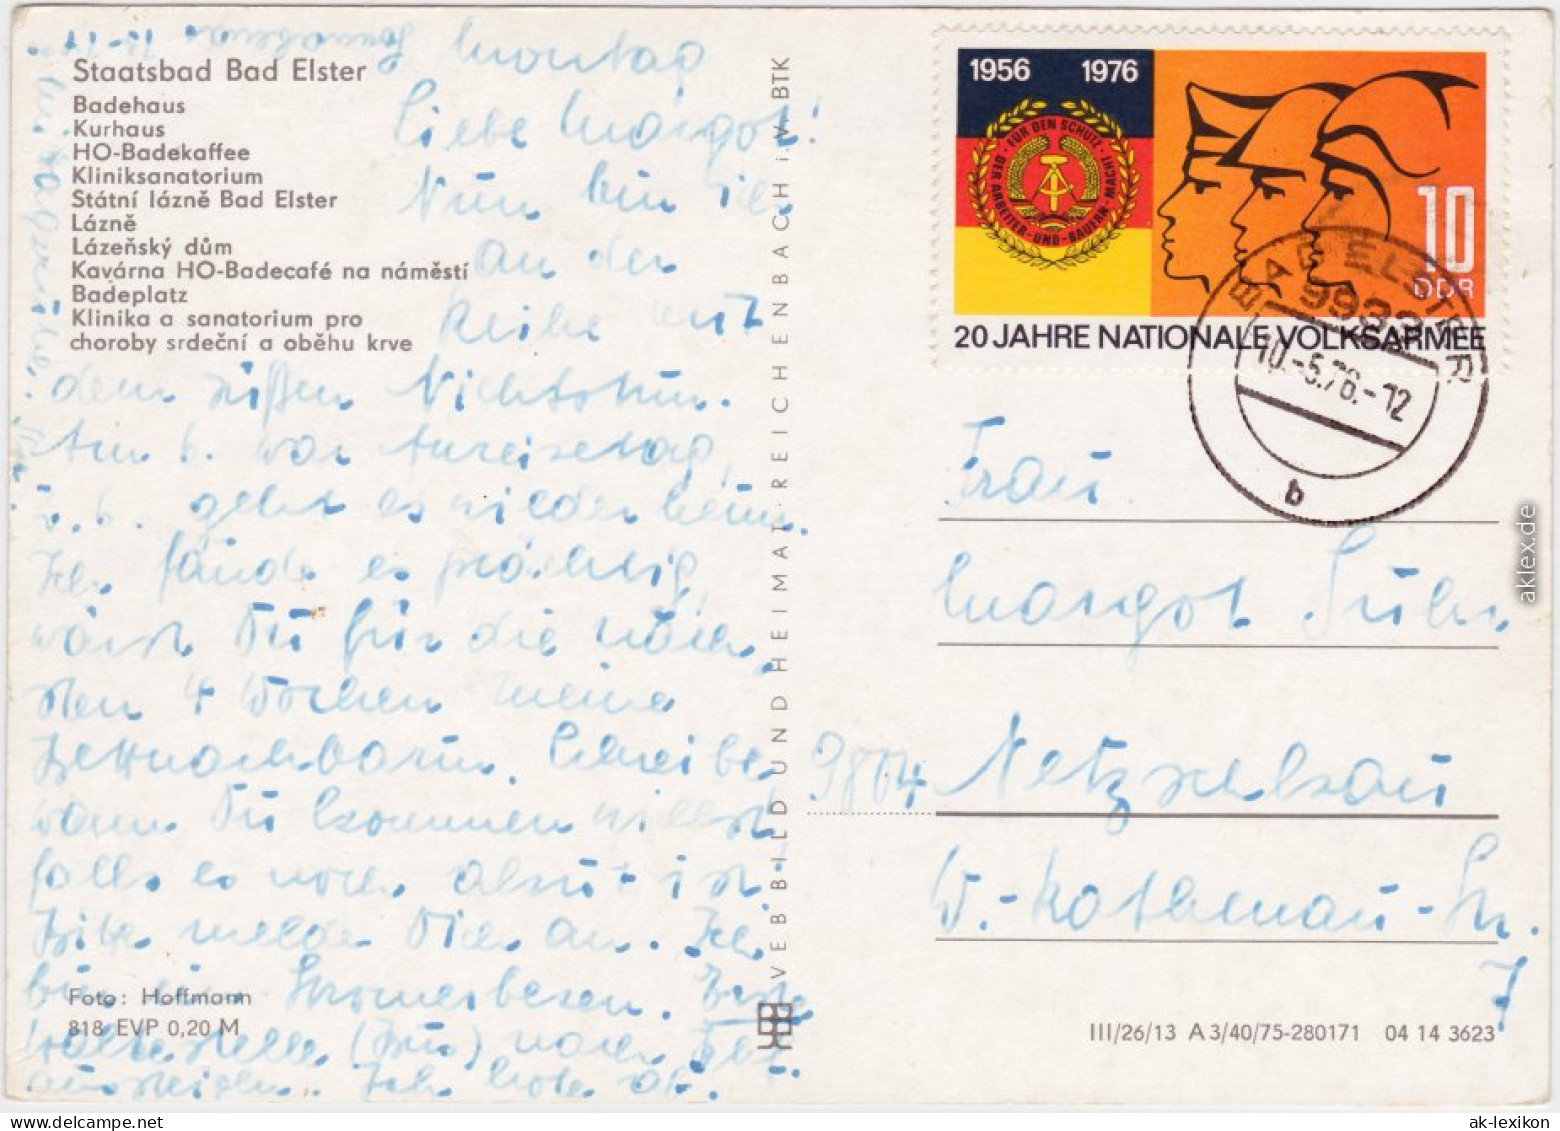 Staatsbad Bad Elster
Badehaus
Kurhaus
HO-Badekaffee
Kliniksanatorium
Státní lázně Bad Elster
Lázně
Lázeňský dům
Kavárna HO-Badecafé na náměstí
Badeplatz
Klinika a sanatorium pro
choroby srdeční a oběhu krve
Montag
Liebe Margot!
Nun bin ich
an der
Reihe mit
dem süßen Nichtstun.
Am 6. war Anreisetag,
geht es wieder heim.
Ich fände es prächtig,
wärst Du für die näch-
sten 4 Wochen meine
Bettnachbarin. Schreibe
wann Du kommen willst
falls es noch akut ist.
Bitte melde Dich an. Ich
bin ein
haltestelle (Bus) nach
aussteigen. Ich hole ab.
Foto: Hoffmann
818 EVP 0,20 M
VEB BILD UND HEIMAT REICHENBACH i. V. BTK
1956 1976
FÜR DEN SCHUTZ DER ARBEITER-UND-BAUERN-MACHT
10
DDR
20 JAHRE NATIONALE VOLKSARMEE
BAD ELSTER
9933
10.-5.76.-12
b
Frau
Margot
9804 Netzschkau
W.-Rathenau-Str.
7
III/26/13 A 3/40/75-280171 04 14 3623
aklex.de
ak-lexikon